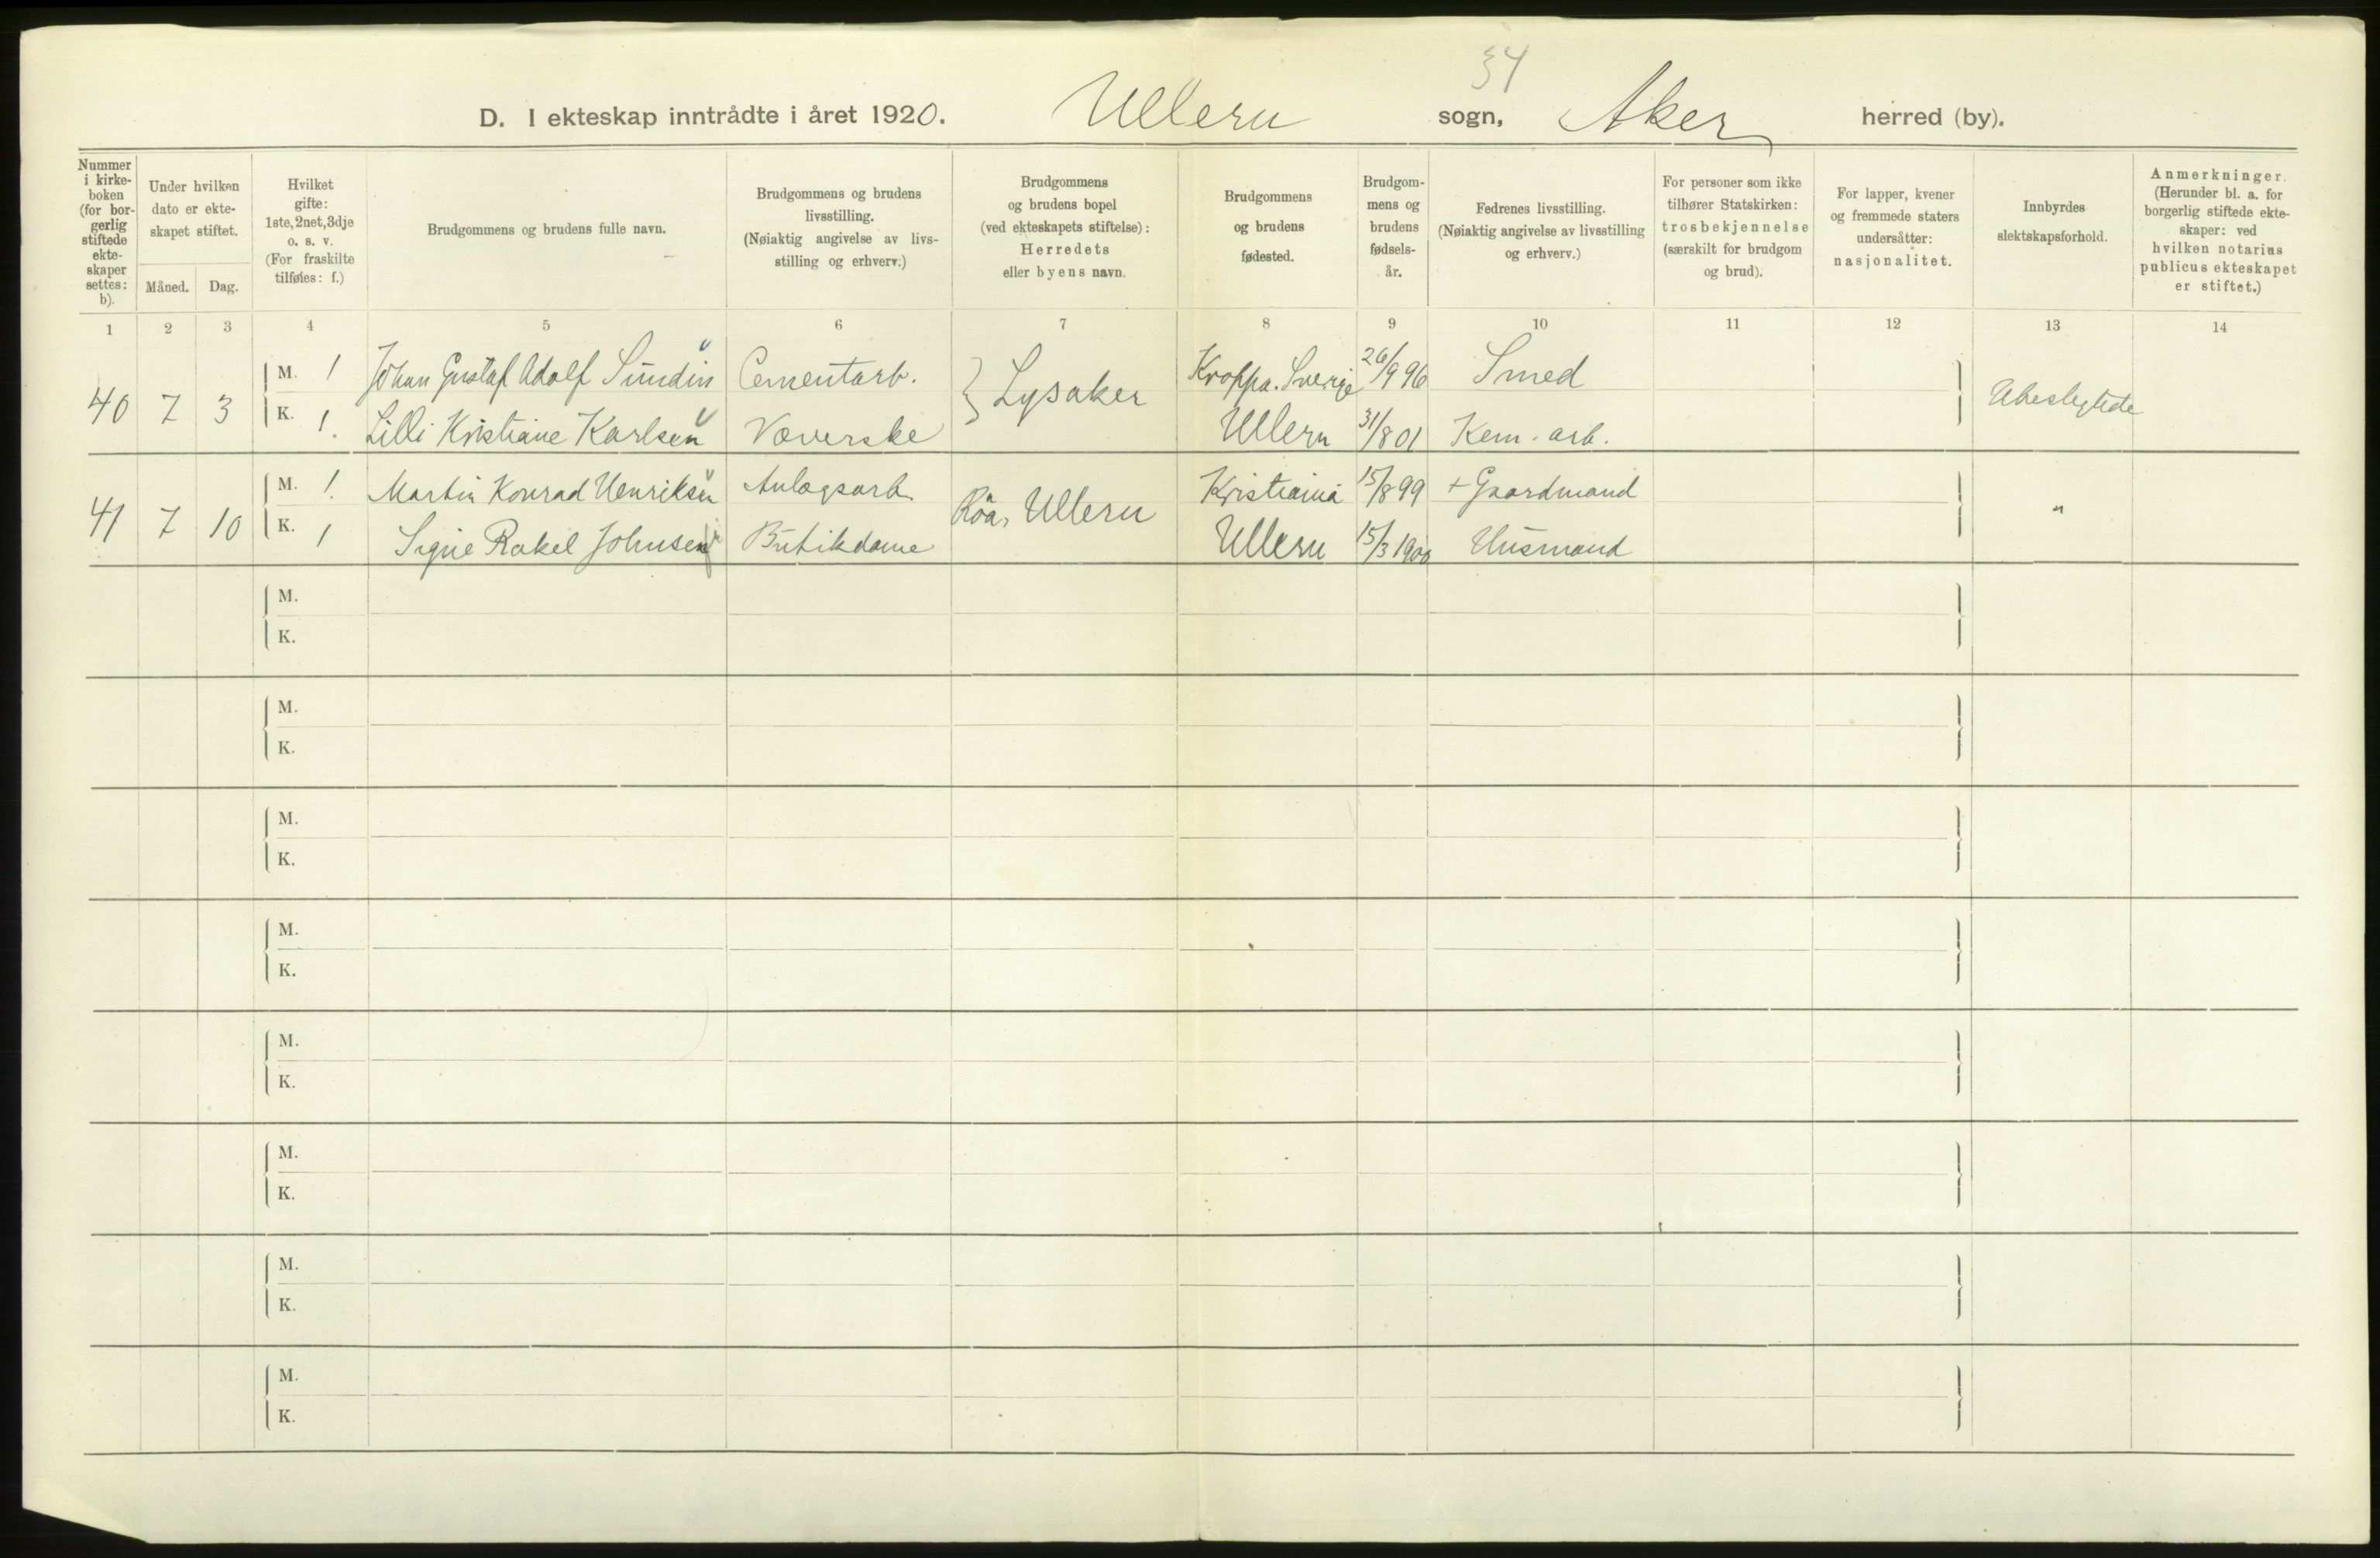 34
D. I ekteskap inntrådte i året 1920. Ullern sogn, Aker herred (by).
Nummer
i kirke-
boken
(for bor-
gerlig
stiftede
ekte-
skaper
settes:
b).
Under hvilken
dato er ekte-
skapet stiftet.
Måned. Dag.
Hvilket
gifte:
1ste, 2net, 3dje
o. s. v.
(For fraskilte
tilføies: f.)
Brudgommens og brudens fulle navn.
Brudgommens og brudens
livsstilling.
(Nøiaktig angivelse av livs-
stilling og erhverv.)
Brudgommens
og brudens bopel
(ved ekteskapets stiftelse):
Herredets
eller byens navn.
Brudgommens
og brudens
fødested.
Brudgom-
mens og
brudens
fødsels-
år.
Fedrenes livsstilling.
(Nøiaktig angivelse av livsstilling
og erhverv.)
For personer som ikke
tilhører Statskirken:
trosbekjennelse
(særskilt for brudgom
og brud).
For lapper, kvener
og fremmede staters
undersåtter:
nasjonalitet.
Innbyrdes
slektskapsforhold.
Anmerkninger.
(Herunder bl. a. for
borgerlig stiftede ekte-
skaper: ved
hvilken notarius
publicus ekteskapet
er stiftet.)
1 2 3 4 5 6 7 8 9 10 11 12 13 14
40 7 3 M. 1 Johan Gustaf Adolf Sundin Cementarb. } Lysaker Kroppa. Sverige 26/9 96 Smed Ubeslegtede
K. 1. Lilli Kristiane Karlsen Væverske Ullern 31/8 01 Kem. arb.
41 7 10 M. 1. Martin Konrad Henriksen Anlægsarb. Röa, Ullern Kristiania 15/8 99 + Gaardmand "
K. 1 Signe Rakel Johnsen Butikdame Ullern 15/3 1900 Husmand
M.
K.
M.
K.
M.
K.
M.
K.
M.
K.
M.
K.
M.
K.
M.
K.